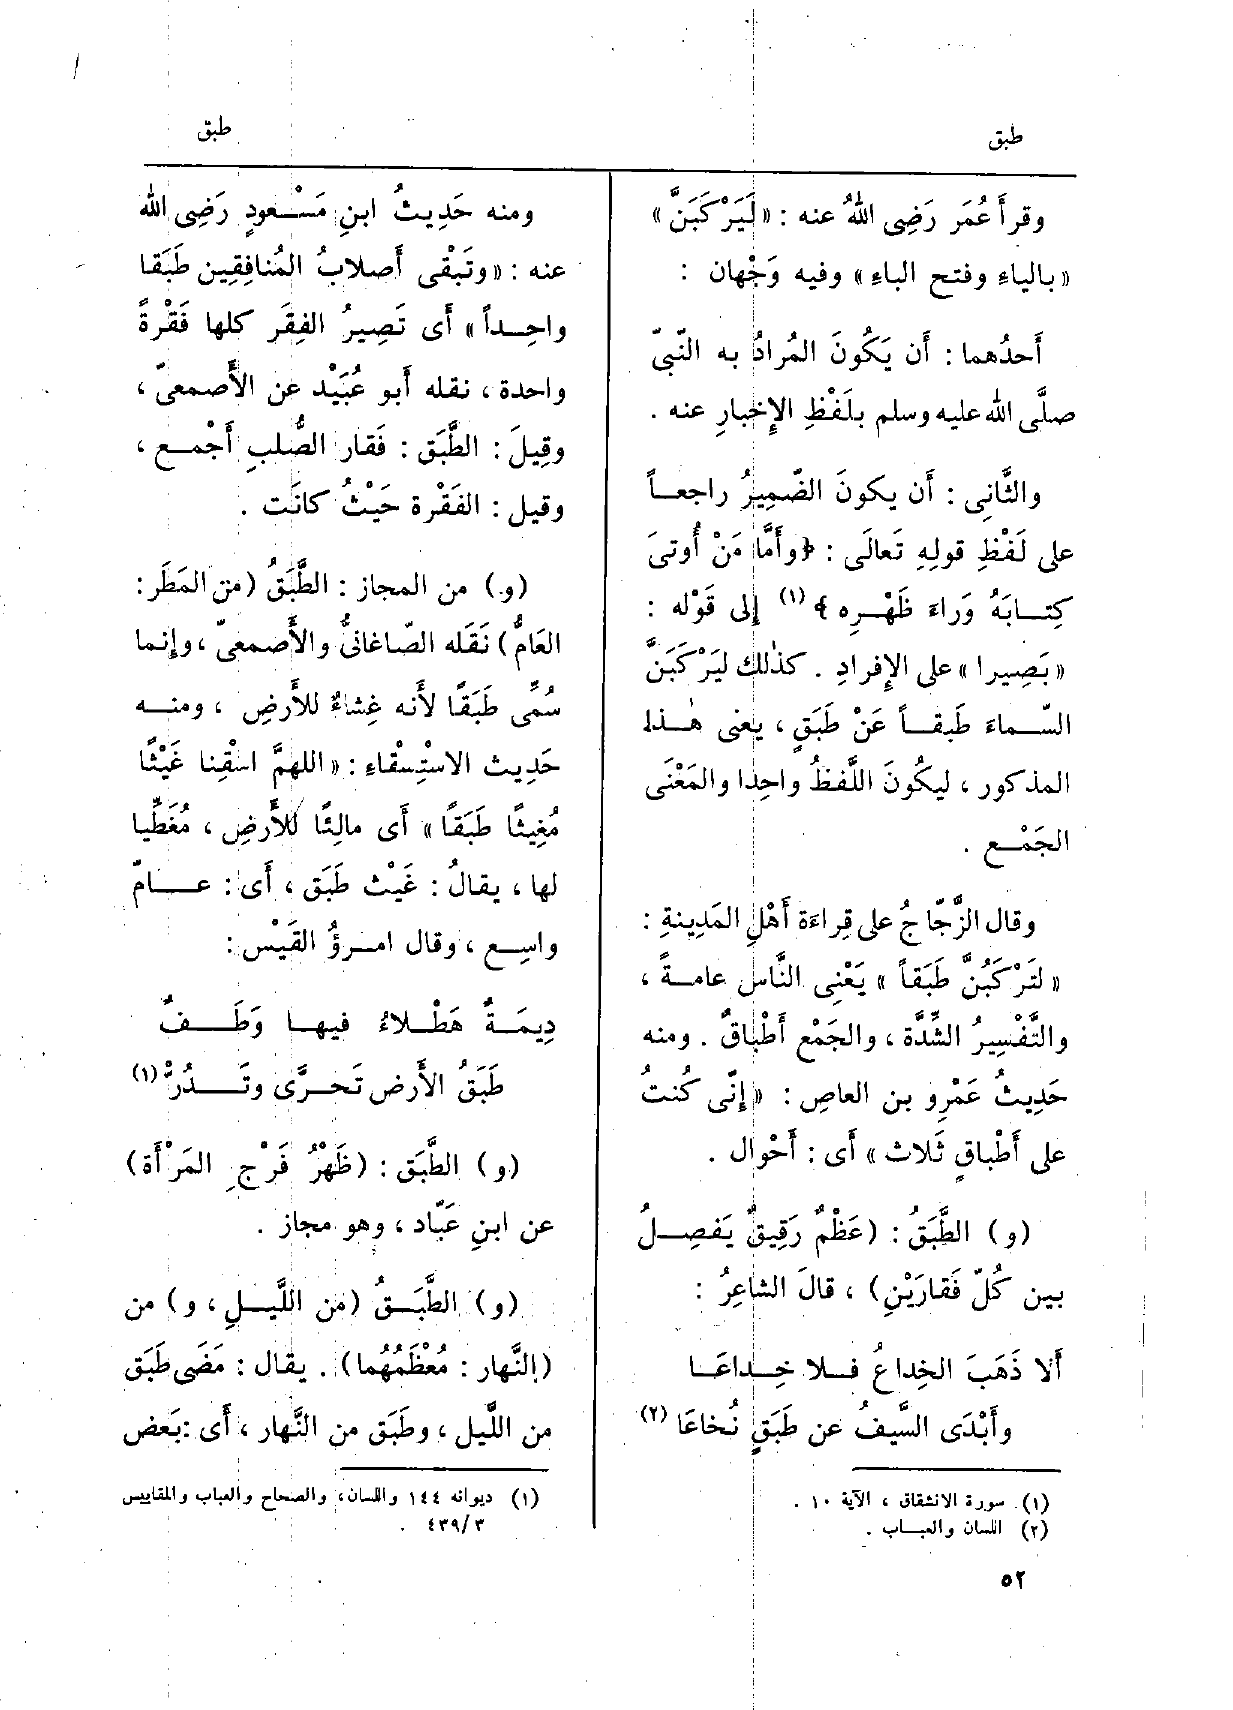 طبق
طبق
وقرأ عُمَر رَضِى اللهُ عنه : «لَيَرْكَبَنَّ»
«بالياءِ وفتح الباء» وفيه وَجْهان :
أَحدُهما : أَن يَكُونَ المُرادُ به النّبىّ
صلَّى الله عليه وسلم بلَفْظِ الإِخبارِ عنه .
والثَّانِى : أَن يكونَ الضّمِيرُ راجعاً
على لَفْظِ قولِهِ تَعالَى : ﴿وأَمَّا مَنْ أُوتىَ
كِتابَهُ وَراءَ ظَهْرِه﴾ (١) إلى قَوْله :
«بَصِيرا» على الإِفرادِ . كذٰلك ليَرْكَبَنَّ
السّماءَ طَبقاً عَنْ طَبَقٍ ، يعنى هٰذا
المذكور ، ليكُونَ اللَّفظُ واحِدًا والمَعْنَى
الجَمْع .
وقال الزَّجّاجُ على قِراءَة أَهْلِ المَدِينةِ :
«لتَرْكَبُنَّ طَبَقاً» يَعْنِى النَّاسَ عامةً ،
والتَّفْسِيرُ الشِّدَّة ، والجَمْع أَطْباقٌ . ومنه
حَدِيثُ عَمْرِو بن العاصِ : «إِنّى كُنتُ
على أَطْباقٍ ثَلاث» أى : أَحْوال .
(و) الطَّبَقُ : (عَظْمٌ رَقِيقٌ يَفصِلُ
بين كُلّ فَقارَيْنِ) ، قالَ الشاعِرُ :
أَلا ذَهَبَ الخِداعُ فلا خِداعَا
وأَبْدَى السَّيفُ عن طَبَقٍ نُخاعَا (٢)
(١) سورة الانشقاق ، الآية ١٠ .
(٢) اللسان والعباب .
٥٢
ومنه حَدِيثُ ابنِ مَسْعودٍ رَضِى الله
عنه : «وتَبْقى أَصلابُ المُنافِقِين طَبَقا
واحِداً» أَى تَصِيرُ الفِقَر كلها فَقْرةً
واحدة ، نقله أبو عُبَيْد عن الأَصمعىّ ،
وقِيلَ : الطَّبَق : فَقار الصُّلبِ أَجْمع ،
وقيل : الفَقْرة حَيْثُ كانَت .
(و) من المجاز : الطَّبَقُ (من المَطَر :
العَامُّ) نَقَله الصّاغانىُّ والأَصمعىّ ، وإنما
سُمِّى طَبَقًا لأَنه غِشاءٌ للأَرضِ ، ومنه
حَدِيث الاسْتِسْقاءِ : «اللهمَّ اسْقِنا غَيْثًا
مُغِيثًا طَبَقاً» أَى مالِئًا للأَرضِ ، مُغَطِّيا
لها ، يقالُ : غَيْث طَبَق ، أَى : عامّ
واسِع ، وقال امرؤُ القَيْس :
دِيمَةٌ هَطْلاءُ فيها وَطَفٌ
طَبَقُ الأَرض تَحرَّى وتَدُرّْ (١)
(و) الطَّبَق : (ظَهْرُ فَرْجِ المَرْأَة)
عن ابنِ عَبّاد ، وهو مجاز .
(و) الطَّبَقُ (من اللَّيلِ ، و) من
(النَّهار : مُعْظَمُهُما) . يقال : مَضَى طَبَق
من اللَّيل ، وطَبَق من النَّهار ، أَى : بَعَض
(١) ديوانه ١٤٤ واللسان ، والصحاح والعباب والمقاييس
٤٣٩/٣ .